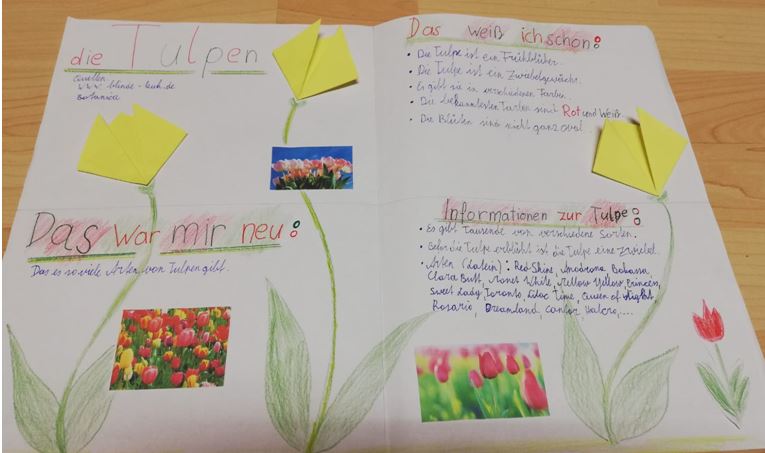 die Tulpen
Quellen:
www.blinde-kuh.de
Botanica
Das weiß ich schon:
• Die Tulpe ist ein Frühblüher.
• Die Tulpe ist ein Zwiebelgewächs.
• Es gibt sie in verschiedenen Farben.
• Die bekanntesten Farben sind Rot und Weiß.
• Die Blüten sind nicht ganz oval.
Das war mir neu:
Das es so viele Arten von Tulpen gibt.
Informationen zur Tulpe:
• Es gibt Tausende von verschiedene Sorten.
• Bevor die Tulpe erblüht ist die Tulpe eine Zwiebel.
• Arten (Latein): Red Shine,
Clara Butt, White, Mellow Yellow, Princess,
Sweet Lady, Toronto, Lilac Time, Queen of Night,
Rosario, Dreamland, Cantor, ...